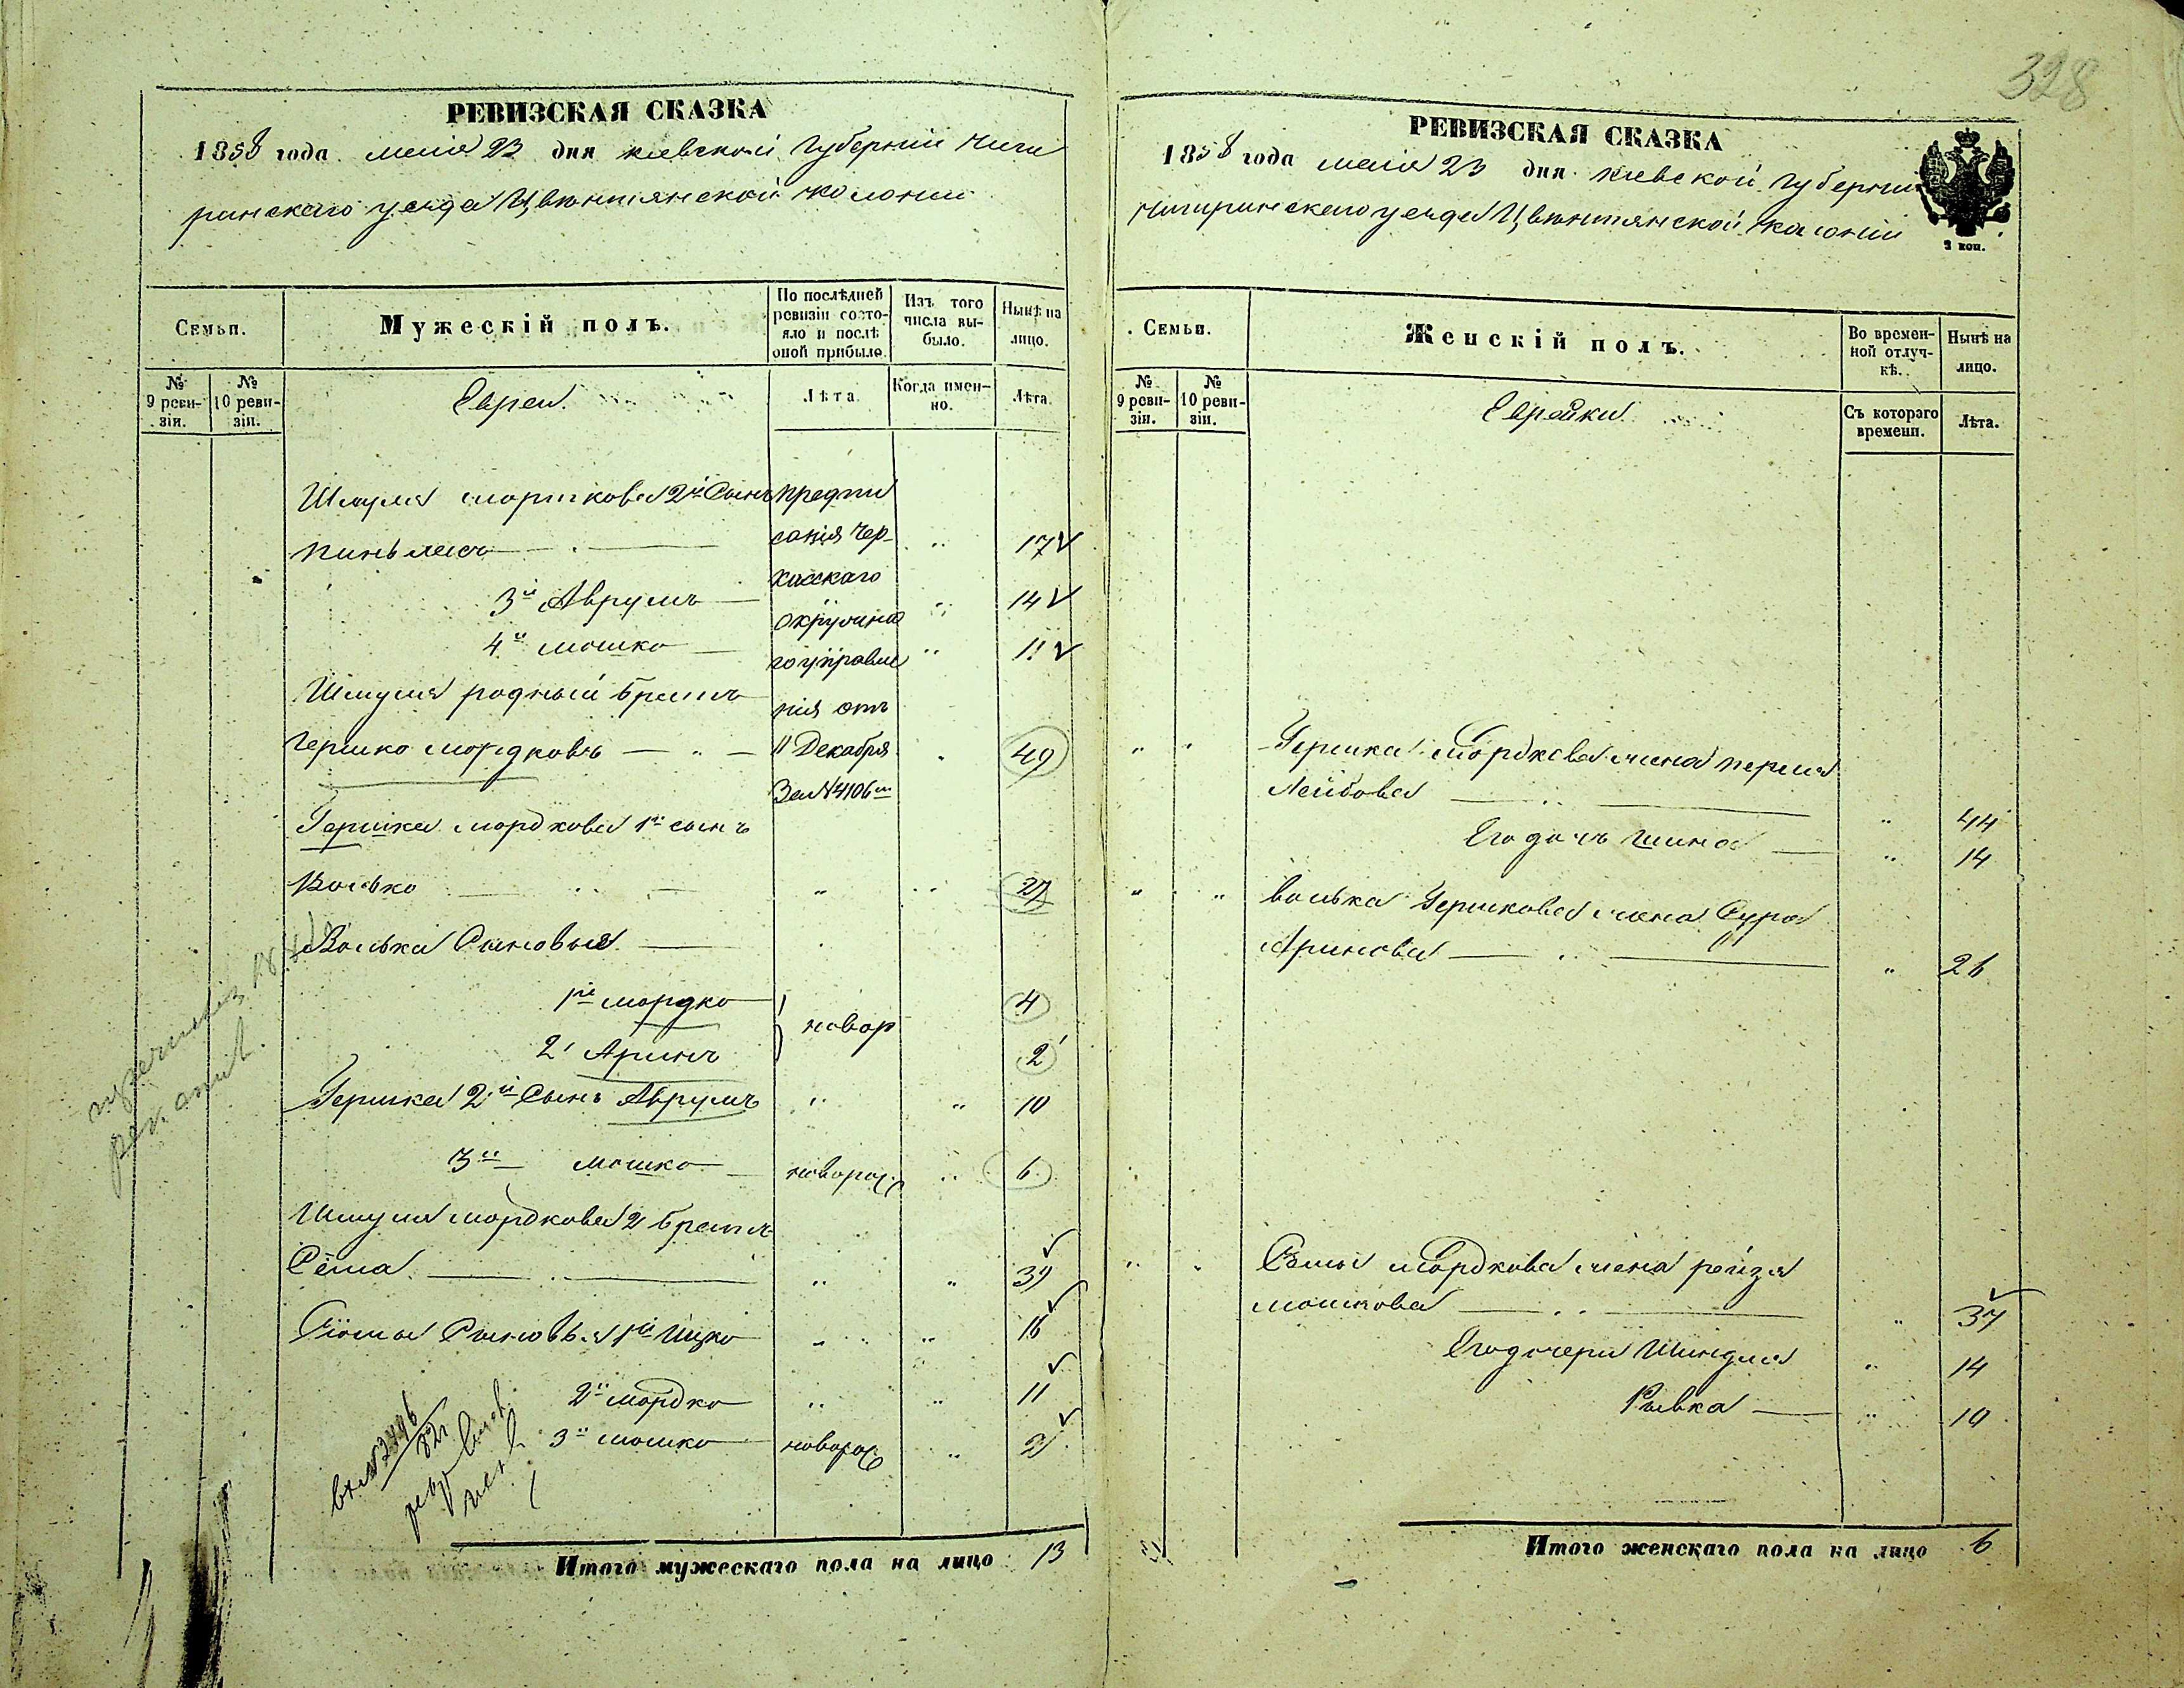 328
РЕВИЗСКАЯ СКАЗКА
1858 года маія 23 дня киевской Губерніи Чиги
ринскаго уезда Цвѣтянской колоніи
Семьи.
Мужескій полъ.
По послѣдней ревизіи состояло и послѣ оной прибыло.
Изъ того числа выбыло.
Нынѣ на лицо.
№ 9 ревизіи.
№ 10 ревизіи.
Евреи.
Лѣта
Когда именно.
Лѣта.
Шмуля морткова 2й Сынъ предпи
пиньхасъ санія Чер- 17
каскаго
3й Аврумъ 14
окружна
4й мошко 11
го управле
Шмуля родный братъ
нія отъ
Гершко мордковъ 11 Декабря 49
За №4106м
Гершка мордкова 1й сынъ
Волько " " 27
Волька Сыновья
1й мордко 4
новор
2 Аринъ 2
Гершка 2й Сынъ Аврумъ " " 10
3й мошко новорож " 6
Шмуля мордкова 2 братъ
Сёма " " 39
Сёмы Сыновья 1й Ицко " " 16
2й мордко " " 11
3й мошко новорож " 2
Итого мужескаго пола на лицо 13
РЕВИЗСКАЯ СКАЗКА
1858 года маія 23 дня киевской Губерніи
чигиринскаго уезда Цвѣтянской колоніи
3 коп.
Семьи.
Женскій полъ.
Во временной отлучкѣ.
Нынѣ на лицо.
№ 9 ревизіи.
№ 10 ревизіи.
Еврейки
Съ котораго времени.
Лѣта.
" " Гершка мордкова жена перля
Лейбова " 44
Его дочь Шина " 14
" " волька Гершкова жена Сура
Аринова " 26
" " Сёмы мордкова жена рейзя
мошкова " 37
Его дочери Шиндля " 14
Рывка " 10
Итого женскаго пола на лицо 6